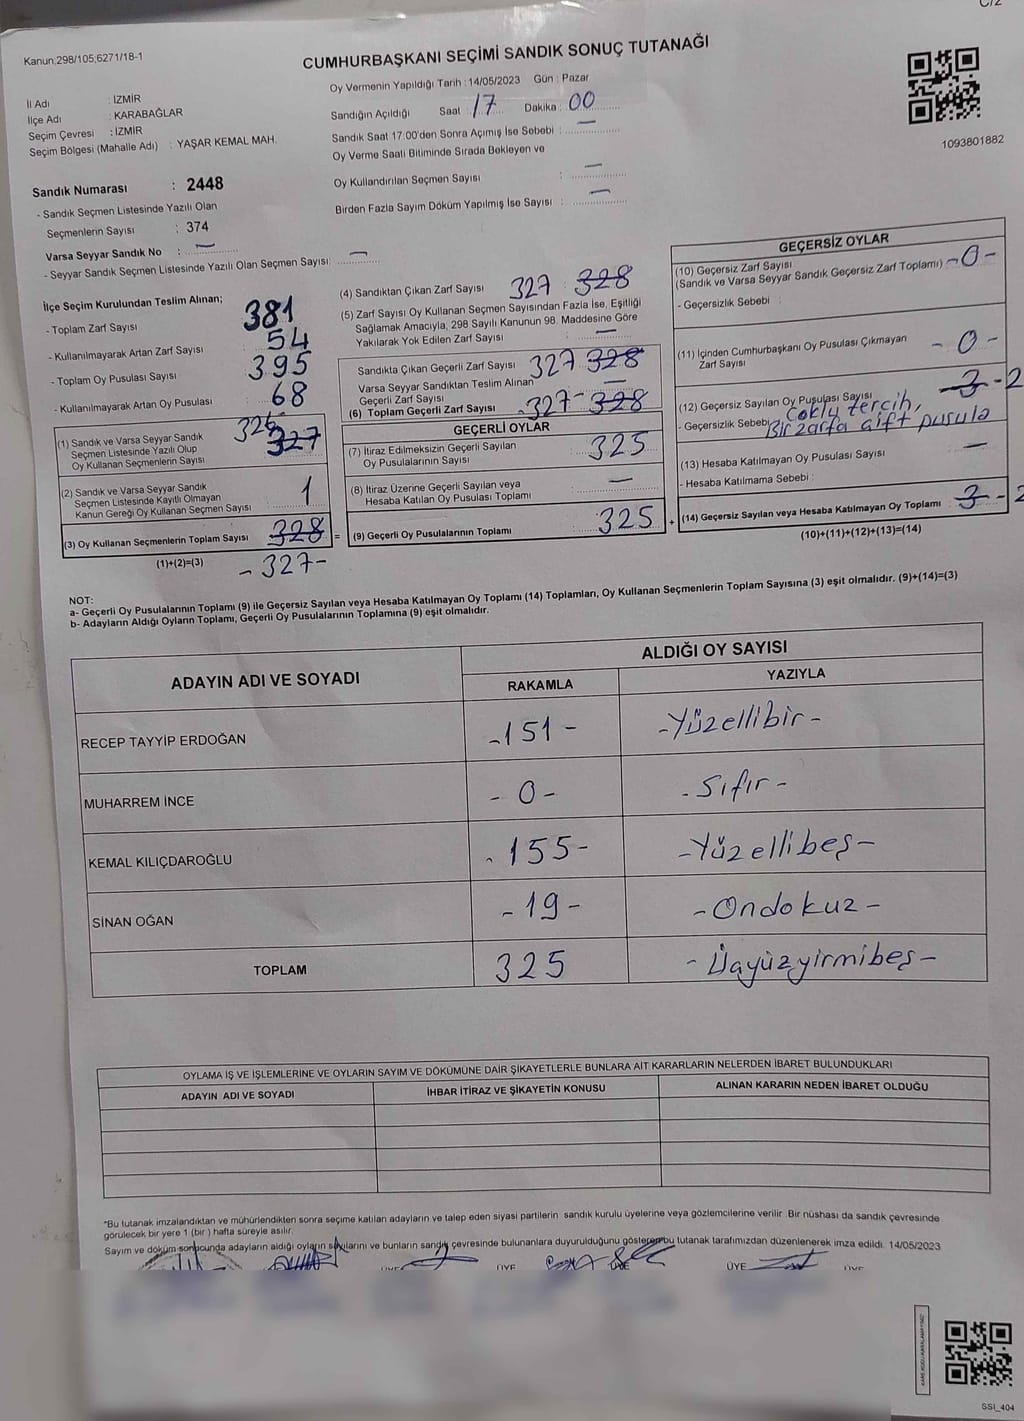 C/2
Kanun;298/105;6271/18-1
CUMHURBAŞKANI SEÇİMİ SANDIK SONUÇ TUTANAĞI
Oy Vermenin Yapıldığı Tarih : 14/05/2023 Gün : Pazar
İl Adı : İZMİR
İlçe Adı : KARABAĞLAR
Seçim Çevresi : İZMİR
Seçim Bölgesi (Mahalle Adı) : YAŞAR KEMAL MAH.
Sandığın Açıldığı Saat : 17 Dakika : 00
Sandık Saat 17:00'den Sonra Açımış İse Sebebi : —
Oy Verme Saati Bitiminde Sırada Bekleyen ve
Oy Kullandırılan Seçmen Sayısı : —
Birden Fazla Sayım Döküm Yapılmış İse Sayısı : —
1093801882
Sandık Numarası : 2448
- Sandık Seçmen Listesinde Yazılı Olan
Seçmenlerin Sayısı : 374
Varsa Seyyar Sandık No : —
- Seyyar Sandık Seçmen Listesinde Yazılı Olan Seçmen Sayısı: —
İlçe Seçim Kurulundan Teslim Alınan;
- Toplam Zarf Sayısı 381
- Kullanılmayarak Artan Zarf Sayısı 54
- Toplam Oy Pusulası Sayısı 395
- Kullanılmayarak Artan Oy Pusulası 68
(1) Sandık ve Varsa Seyyar Sandık
Seçmen Listesinde Yazılı Olup
Oy Kullanan Seçmenlerin Sayısı 326 327
(2) Sandık ve Varsa Seyyar Sandık
Seçmen Listesinde Kayıtlı Olmayan
Kanun Gereği Oy Kullanan Seçmen Sayısı 1
(3) Oy Kullanan Seçmenlerin Toplam Sayısı 328 =
(1)+(2)=(3) - 327 -
(4) Sandıktan Çıkan Zarf Sayısı : 327 328
(5) Zarf Sayısı Oy Kullanan Seçmen Sayısından Fazla İse, Eşitliği
Sağlamak Amacıyla, 298 Sayılı Kanunun 98. Maddesine Göre
Yakılarak Yok Edilen Zarf Sayısı : —
Sandıkta Çıkan Geçerli Zarf Sayısı 327 328
Varsa Seyyar Sandıktan Teslim Alınan
Geçerli Zarf Sayısı —
(6) Toplam Geçerli Zarf Sayısı - 327 - 328
GEÇERLİ OYLAR
(7) İtiraz Edilmeksizin Geçerli Sayılan
Oy Pusulalarının Sayısı 325
(8) İtiraz Üzerine Geçerli Sayılan veya
Hesaba Katılan Oy Pusulası Toplamı —
(9) Geçerli Oy Pusulalarının Toplamı 325 +
GEÇERSİZ OYLAR
(10) Geçersiz Zarf Sayısı
(Sandık ve Varsa Seyyar Sandık Geçersiz Zarf Toplamı) - 0 -
- Geçersizlik Sebebi :
(11) İçinden Cumhurbaşkanı Oy Pusulası Çıkmayan
Zarf Sayısı - 0 -
(12) Geçersiz Sayılan Oy Pusulası Sayısı 3 - 2
- Geçersizlik Sebebi Çoklu tercih,
Bir zarfa çift pusula
(13) Hesaba Katılmayan Oy Pusulası Sayısı —
- Hesaba Katılmama Sebebi :
(14) Geçersiz Sayılan veya Hesaba Katılmayan Oy Toplamı 3 - 2
(10)+(11)+(12)+(13)=(14)
NOT:
a- Geçerli Oy Pusulalarının Toplamı (9) ile Geçersiz Sayılan veya Hesaba Katılmayan Oy Toplamı (14) Toplamları, Oy Kullanan Seçmenlerin Toplam Sayısına (3) eşit olmalıdır. (9)+(14)=(3)
b- Adayların Aldığı Oyların Toplamı, Geçerli Oy Pusulalarının Toplamına (9) eşit olmalıdır.
ADAYIN ADI VE SOYADI
ALDIĞI OY SAYISI
RAKAMLA YAZIYLA
RECEP TAYYİP ERDOĞAN - 151 - - Yüzellibir -
MUHARREM İNCE - 0 - - Sıfır -
KEMAL KILIÇDAROĞLU - 155 - - Yüzellibeş -
SİNAN OĞAN - 19 - - Ondokuz -
TOPLAM 325 - Üçyüzyirmibeş -
OYLAMA İŞ VE İŞLEMLERİNE VE OYLARIN SAYIM VE DÖKÜMÜNE DAİR ŞİKAYETLERLE BUNLARA AİT KARARLARIN NELERDEN İBARET BULUNDUKLARI
ADAYIN ADI VE SOYADI İHBAR İTİRAZ VE ŞİKAYETİN KONUSU ALINAN KARARIN NEDEN İBARET OLDUĞU
*Bu tutanak imzalandıktan ve mühürlendikten sonra seçime katılan adayların ve talep eden siyasi partilerin sandık kurulu üyelerine veya gözlemcilerine verilir. Bir nüshası da sandık çevresinde
görülecek bir yere 1 (bir ) hafta süreyle asılır.
Sayım ve döküm sonucunda adayların aldığı oyların sayılarını ve bunların sandık çevresinde bulunanlara duyurulduğunu gösteren bu tutanak tarafımızdan düzenlenerek imza edildi. 14/05/2023
ÜYE ÜYE ÜYE ÜYE ÜYE
SSI_404